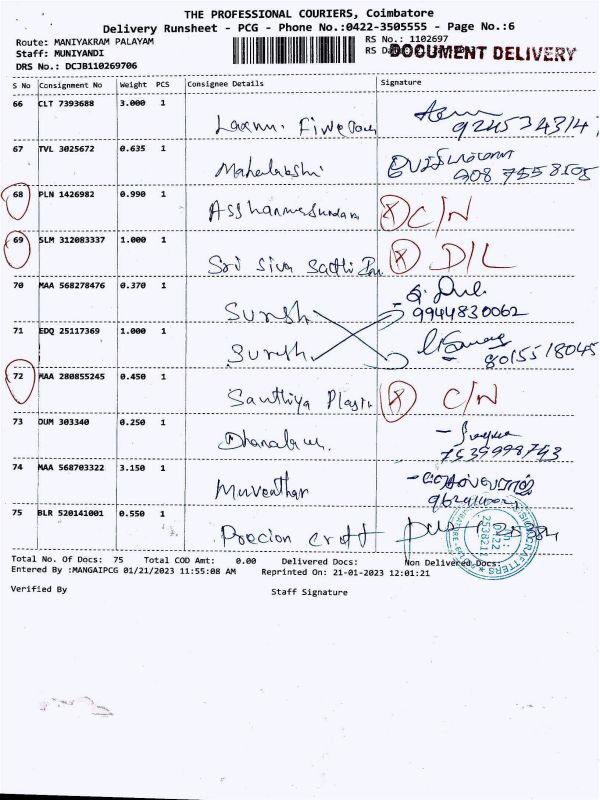 THE PROFESSIONAL COURIERS, Coimbatore
Delivery Runsheet - PCG - Phone No.:0422-3505555 - Page No.:6
Route: MANIYAKRAM PALAYAM RS No.: 1102697
Staff: MUNIYANDI RS Da DOCUMENT DELIVERY
DRS No.: DCJB110269706
S No Consignment No Weight PCS Consignee Details Signature
66 CLT 7393688 3.000 1 Laxmi
9245734314
67 TVL 3025672 0.635 1 Mahalakshmi
908 7558105
68 PLN 1426982 0.990 1 X C/N
69 SLM 312083337 1.000 1 Sri Siva Sakthi X D/L
70 MAA 568278476 0.370 1 Suresh
9944830062
71 EDQ 25117369 1.000 1 Suresh
8015518045
72 MAA 280855245 0.450 1 Santhiya Plasti X C/N
73 DUM 303340 0.250 1 Dhanalaxmi
7539998743
74 MAA 568703322 3.150 1 Muventhar
75 BLR 520141001 0.550 1 Precion Craft
Total No. Of Docs: 75 Total COD Amt: 0.00 Delivered Docs: Non Delivered Docs:
Entered By :MANGAIPCG 01/21/2023 11:55:08 AM Reprinted On: 21-01-2023 12:01:21
Verified By Staff Signature